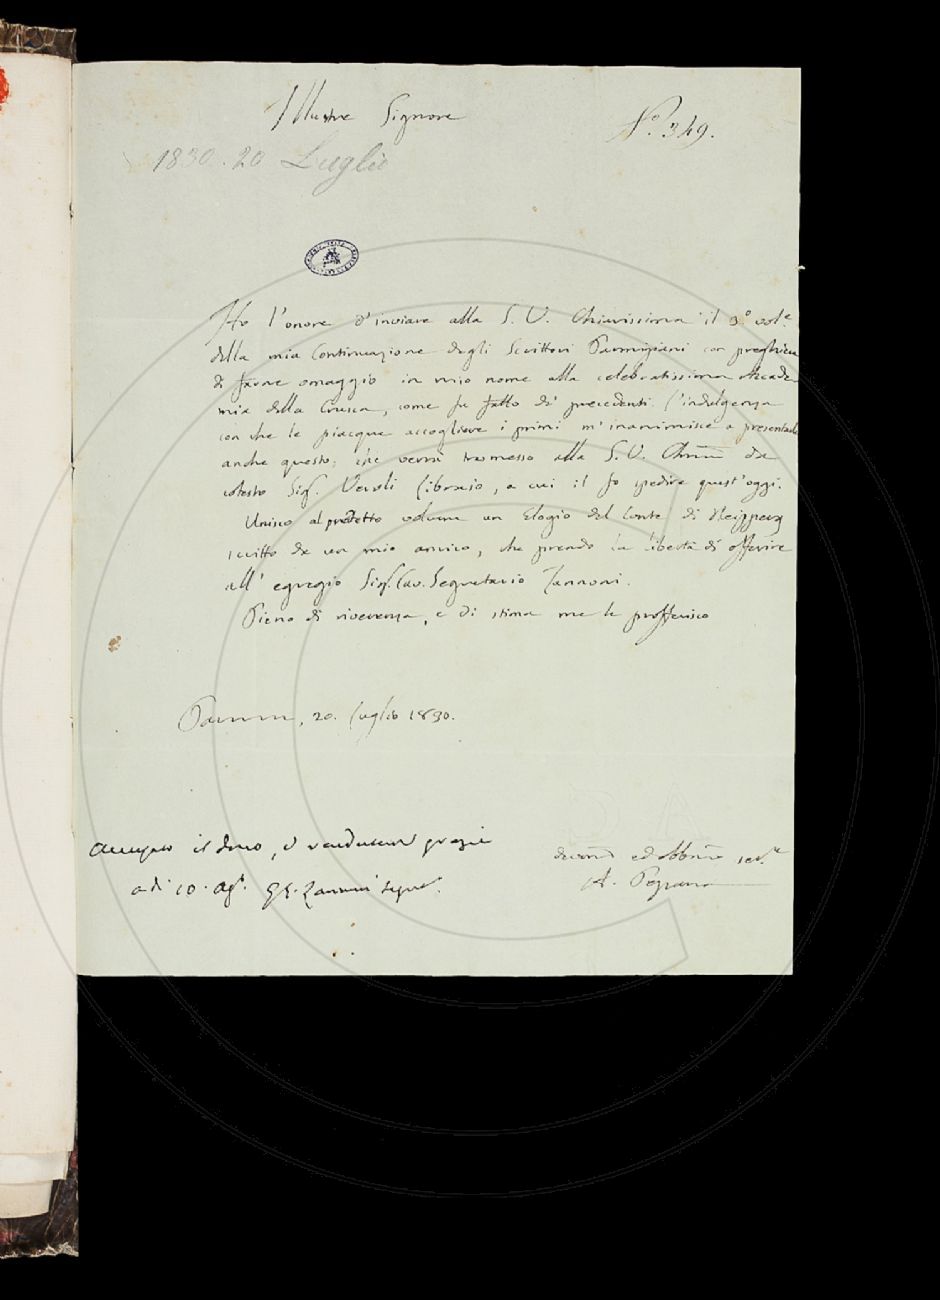 Illustre Signore
N.º 349.
1830. 20 Luglio
Ho l'onore d'inviare alla S. V. Chiarissima il 3º vol.e
della mia Continuazione degli Scrittori Parmigiani con preghiera
di farne omaggio in mio nome alla celebratissima Accade-
mia della Crusca, come fu fatto de' precedenti. L'indulgenza
con che le piacque accogliere i primi m'inanimisce a presentarle
anche questo; che verrà trasmesso alla S. V. Chma da
cotesto Sig. Libraio, a cui il fo spedire quest'oggi.
Unisco al predetto volume un Elogio del Conte di Neipperg
scritto da un mio amico, che prendo la libertà di offerire
all' egregio Sig. Cav. Segretario Zannoni.
Pieno di riverenza, e di stima me le profferisco
Parma, 20. Luglio 1830.
il dono, e rendutene grazie
a dì 10. Ag. Zannoni Segr.
ed obbmo serv.e
A. Pezzana